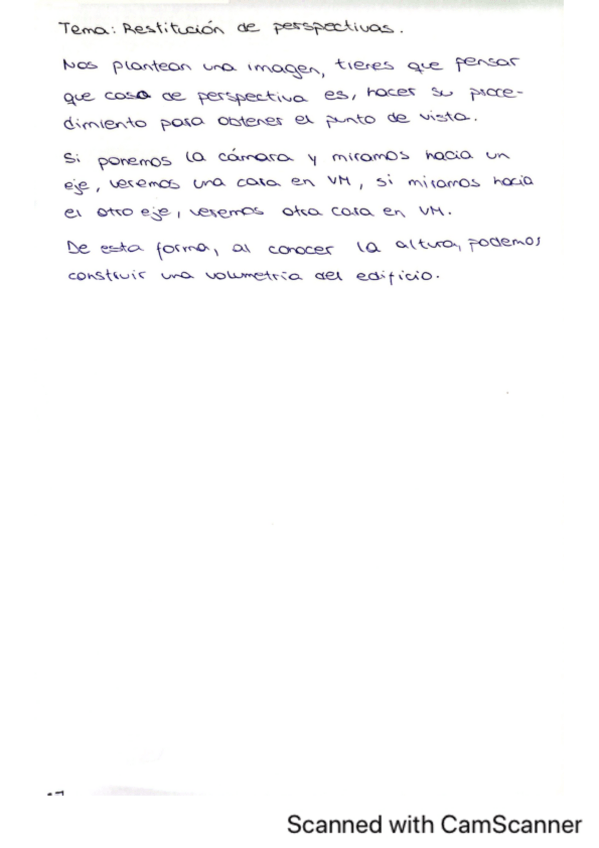 Tema: Restitución de perspectivas.
Nos plantean una imagen, tienes que pensar
que caso de perspectiva es, hacer su proce-
dimiento para obtener el punto de vista.
Si ponemos la cámara y miramos hacia un
eje, veremos una cara en VM, si miramos hacia
el otro eje, veremos otra cara en VM.
De esta forma, al conocer la altura, podemos
construir una volumetria del edificio.
Scanned with CamScanner